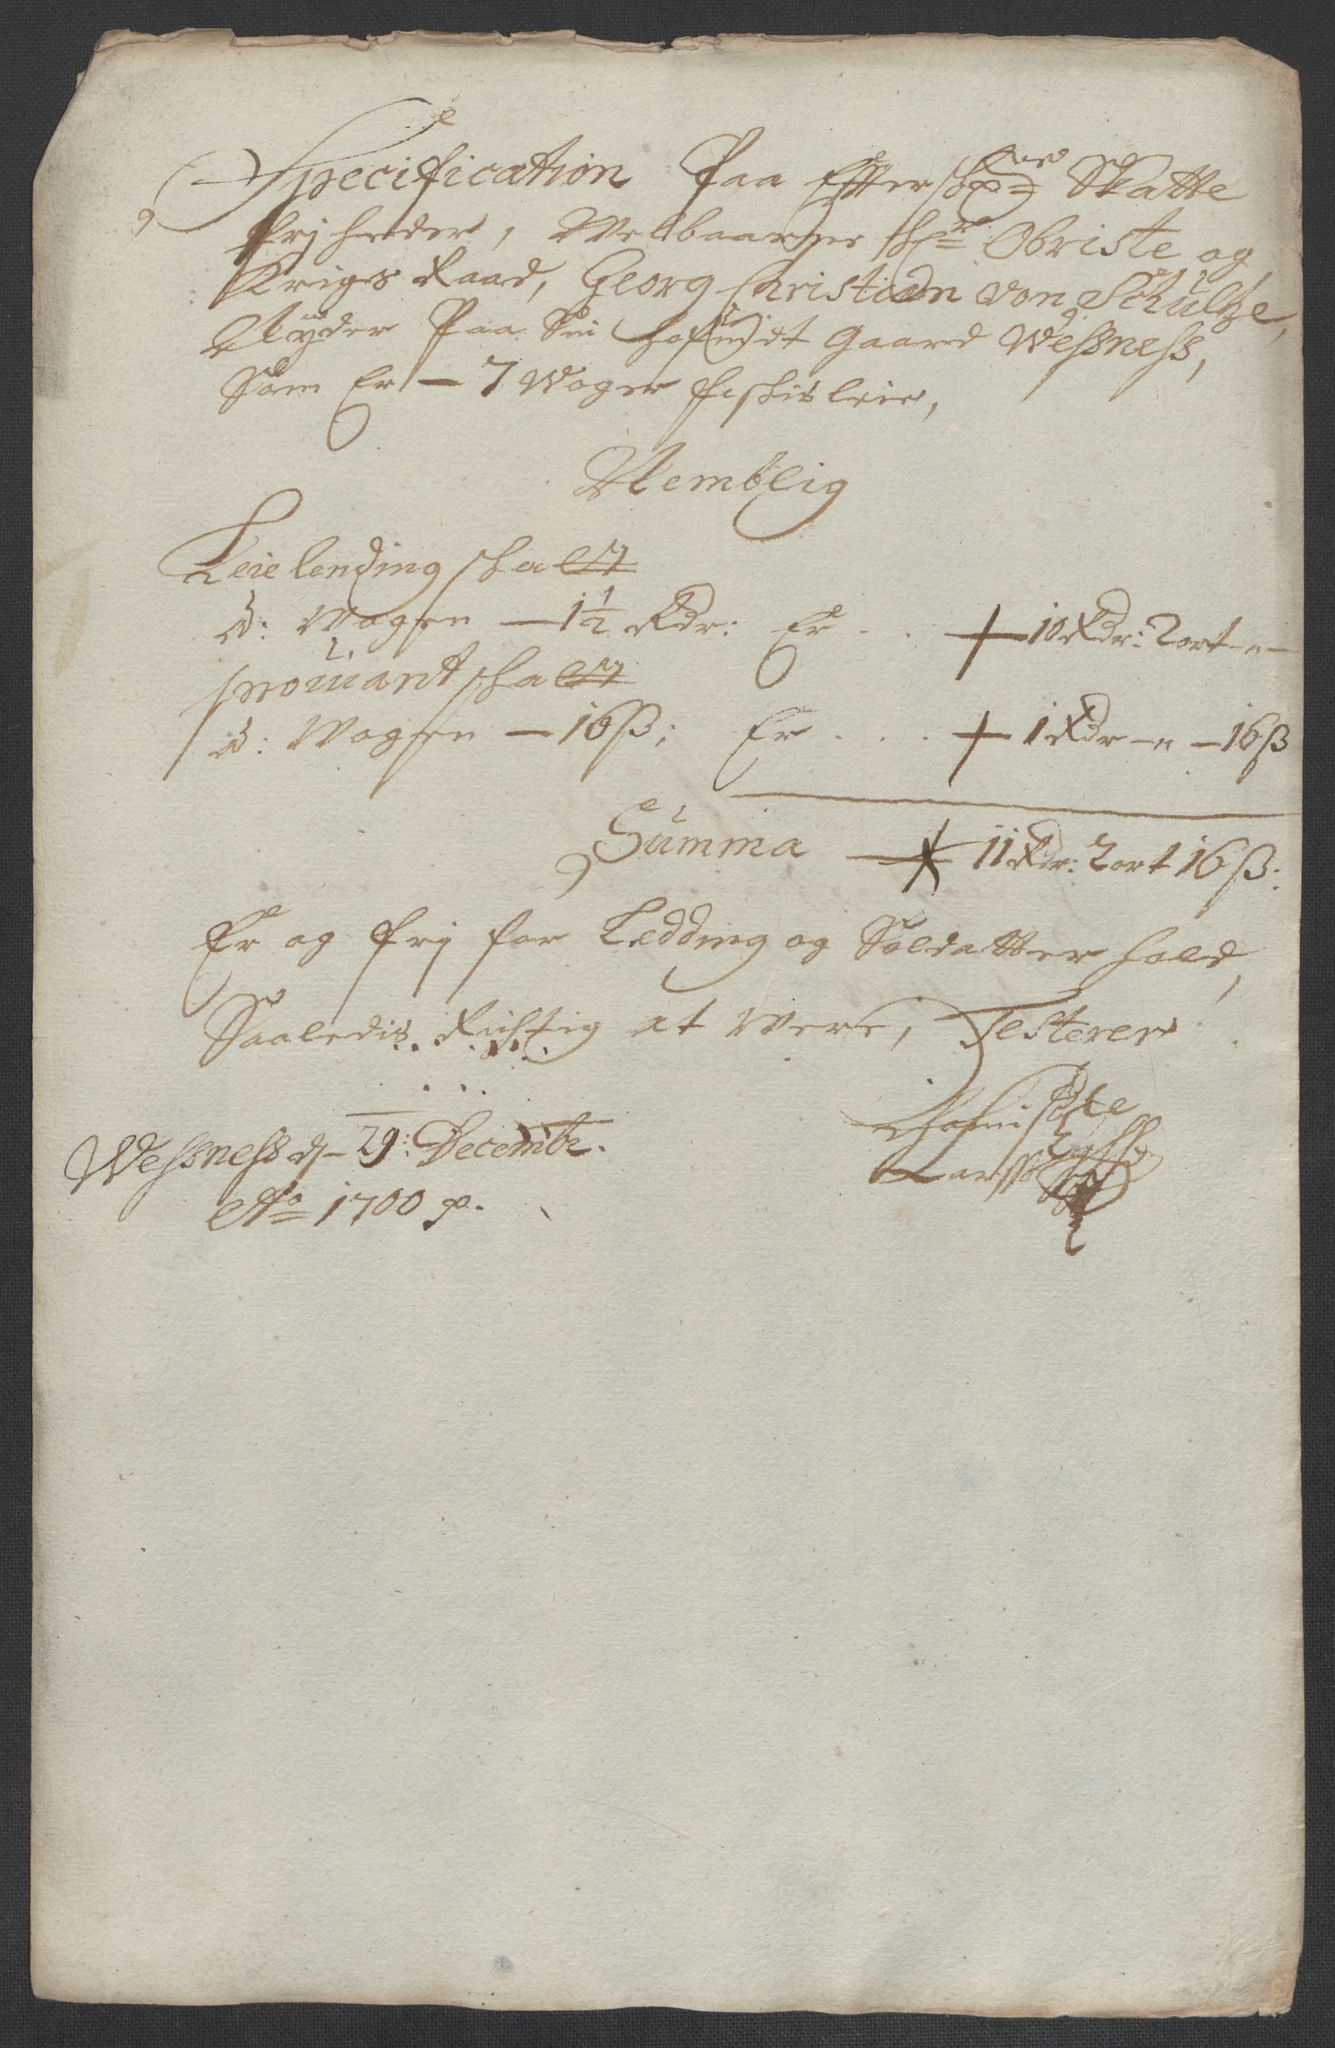 Specification Paa Effterschr: Skatte
frj heeder, Welbaarne Hr: Obriste og
Krigs Raad, Georg Christian von Schultze,
Nyder Paa Sin gaard Wessness,
Som Er — 7 Woger fischis leie,
Nemblig
Leielending schatt
á: Wogen — 1½ Rdr: Er . . 10 Rdr: 2 ort - n -
prouiant schatt
á: Wogen — 16 ß; Er . . . 1 Rdr - n - 16 ß
Summa — 11 Rdr: 2 ort 16 ß:
Er og frj for Ledding og Soldatter hold,
Saaledis Richtig at Were, Testerer
Wessness d — 29: Decembr.
Ao 1700 p.